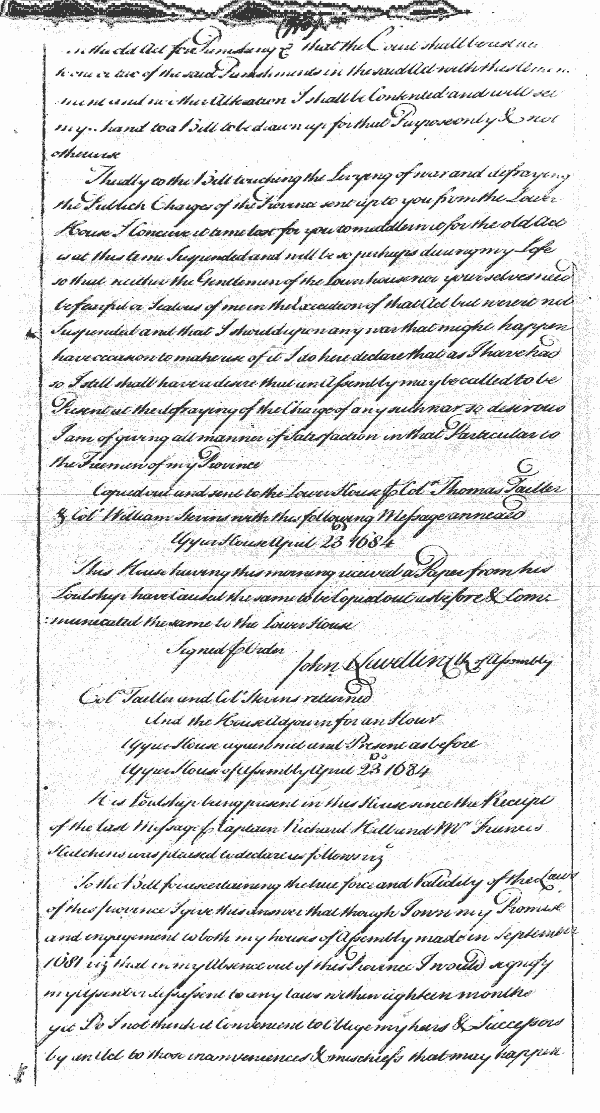 in the old Act for Punishing &c that the Court shall
one or two of the said Punishments in the said Act with this
ment and no other Alteration I shall be Contented and will set
my hand to a Bill to be drawn up for that Purpose only & not
otherwise
Thirdly to the Bill touching the Levying of war and defraying
the Publick Charges of the Province sent up to you from the Lower
House I Conceive it time lost for you to meddle in it for the old Act
is at this time Suspended and will be so perhaps during my Life
so that neither the Gentlemen of the Lower house nor yourselves need
be fearful or Jealous of me in the Execution of that Act but were it not
Suspended and that I should upon any war that might happen
have occasion to make use of it I do here declare that as I have had
so I still shall have a desire that an Assembly may be called to be
Present at the defraying of the Charge of any such war so desirous
I am of giving all manner of Satisfaction in that Particular to
the Freemen of my Province
Copied out and sent to the Lower House ⅌ Colo Thomas Tailler
& Colo William Stevens with this following Message annexed
Upper House April 23d 1684
This House having this morning received a Paper from his
Lordship have Caused the same to be Copied out as before & Com:
:municated the same to the Lower House
Signed ⅌ Order
John Llewellin Clk of Assembly
Colo Tailler and Colo Stevens returned
And the House Adjourn for an Hour
Upper House again met and Present as before
Upper House of Assembly April 23d 1684
His Lordship being present in this House since the Receipt
of the last Message ⅌ Captain Richard Hill and Mr Francis
Hutchens was pleased to declare as follows viz
To the Bill for ascertaining the true force and Validity of the Laws
of this province I give this answer that though I own my Promise
and engagement to both my houses of Assembly made in September
1681 viz that in my Absence out of this Province I would signify
my Assent or dissent to any laws within eighteen months
yet Do I not think it Convenient to oblige my heirs & Successors
by an Act to those inconveniences & mischiefs that may happen